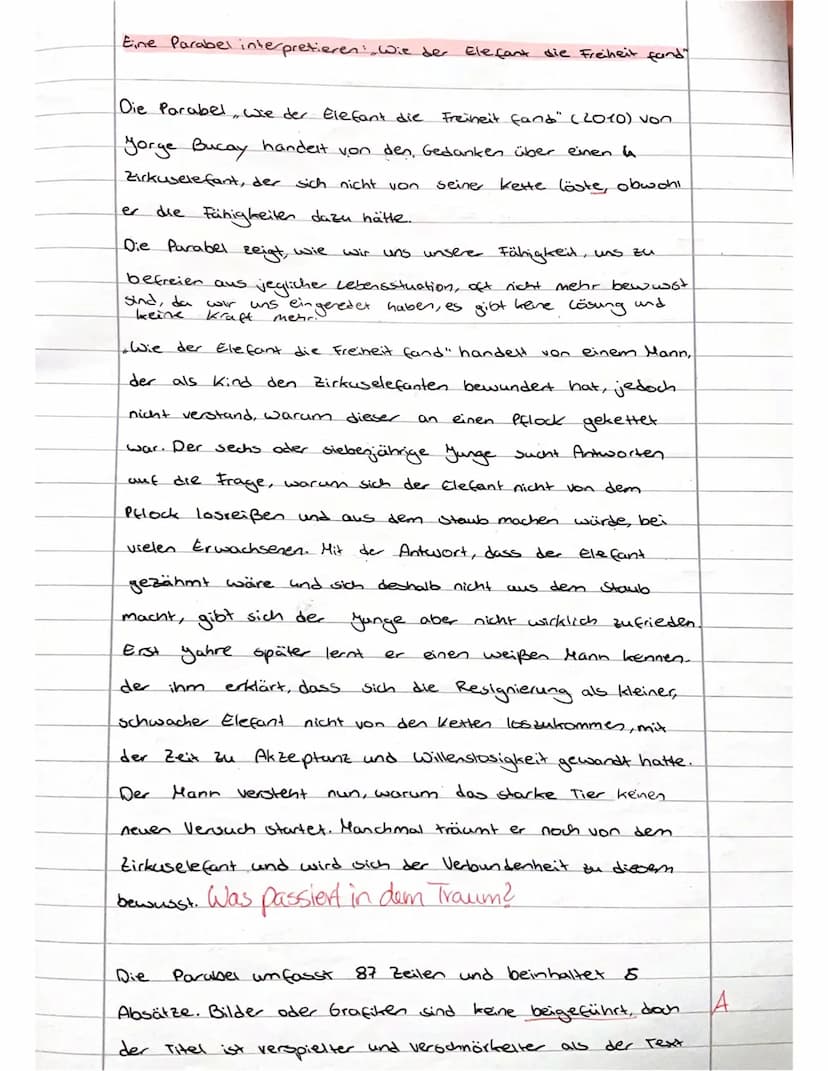 Eine Parabel interpretieren: „Wie der Elefant die Freiheit fand"
Die Parabel „Wie der Elefant die Freiheit fand" (2010) von
Jorge Bucay handelt von den Gedanken über einen
Zirkuselefant, der sich nicht von seiner Kette löste, obwohl
er die Fähigkeiten dazu hätte.
Die Parabel zeigt, wie wir uns unsere Fähigkeit, uns zu
befreien aus jeglicher Lebenssituation, oft nicht mehr bewusst
sind, da wir uns eingeredet haben, es gibt keine Lösung und
keine Kraft mehr.
„Wie der Elefant die Freiheit fand" handelt von einem Mann,
der als Kind den Zirkuselefanten bewundert hat, jedoch
nicht verstand, warum dieser an einen Pflock gekettet
war. Der sechs oder siebenjährige Junge sucht Antworten
auf die Frage, warum sich der Elefant nicht von dem
Pflock losreißen und aus dem Staub machen würde, bei
vielen Erwachsenen. Mit der Antwort, dass der Elefant
gezähmt wäre und sich deshalb nicht aus dem Staub
macht, gibt sich der Junge aber nicht wirklich zufrieden.
Erst Jahre später lernt er einen weißen Mann kennen.
der ihm erklärt, dass sich die Resignierung als kleiner,
schwacher Elefant nicht von den Ketten loszukommen, mit
der Zeit zu Akzeptanz und Willenslosigkeit gewandt hatte.
Der Mann versteht nun, warum das starke Tier keinen
neuen Versuch startet. Manchmal träumt er noch von dem
Zirkuselefant und wird sich der Verbundenheit zu diesem
bewusst. Was passiert in dem Traum?
Die Parabel umfasst 87 Zeilen und beinhaltet 5
Absätze. Bilder oder Grafiken sind keine beigeführt, doch A
der Titel ist verspielter und verschnörkelter als der Text